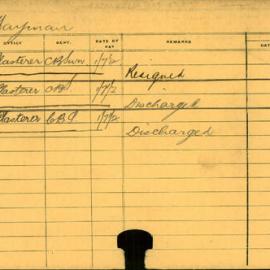 Hayman
OFFICE DEPT. DATE OF PAY REMARKS DATE
lasterer 1/7/2 Resigned
lasterer 1/7/2 Discharged
lasterer C.B.J 1/7/2 Discharged